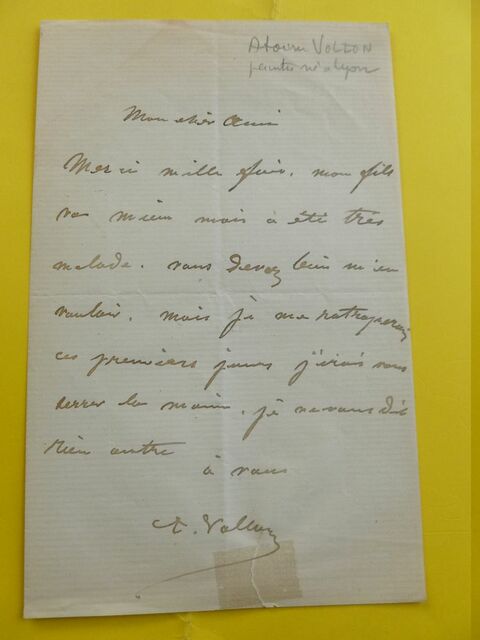 Antoine VOLLON
peintre né à Lyon
Mon cher Ami
Merci mille fois. mon fils
vas mieux mais à été très
malade. vous devez bien m'en
vouloir. mais je me ratraperai
ces premiers jours j'irais vous
serrer la main. je ne vous dis
rien autre
à vous
A. Vollon